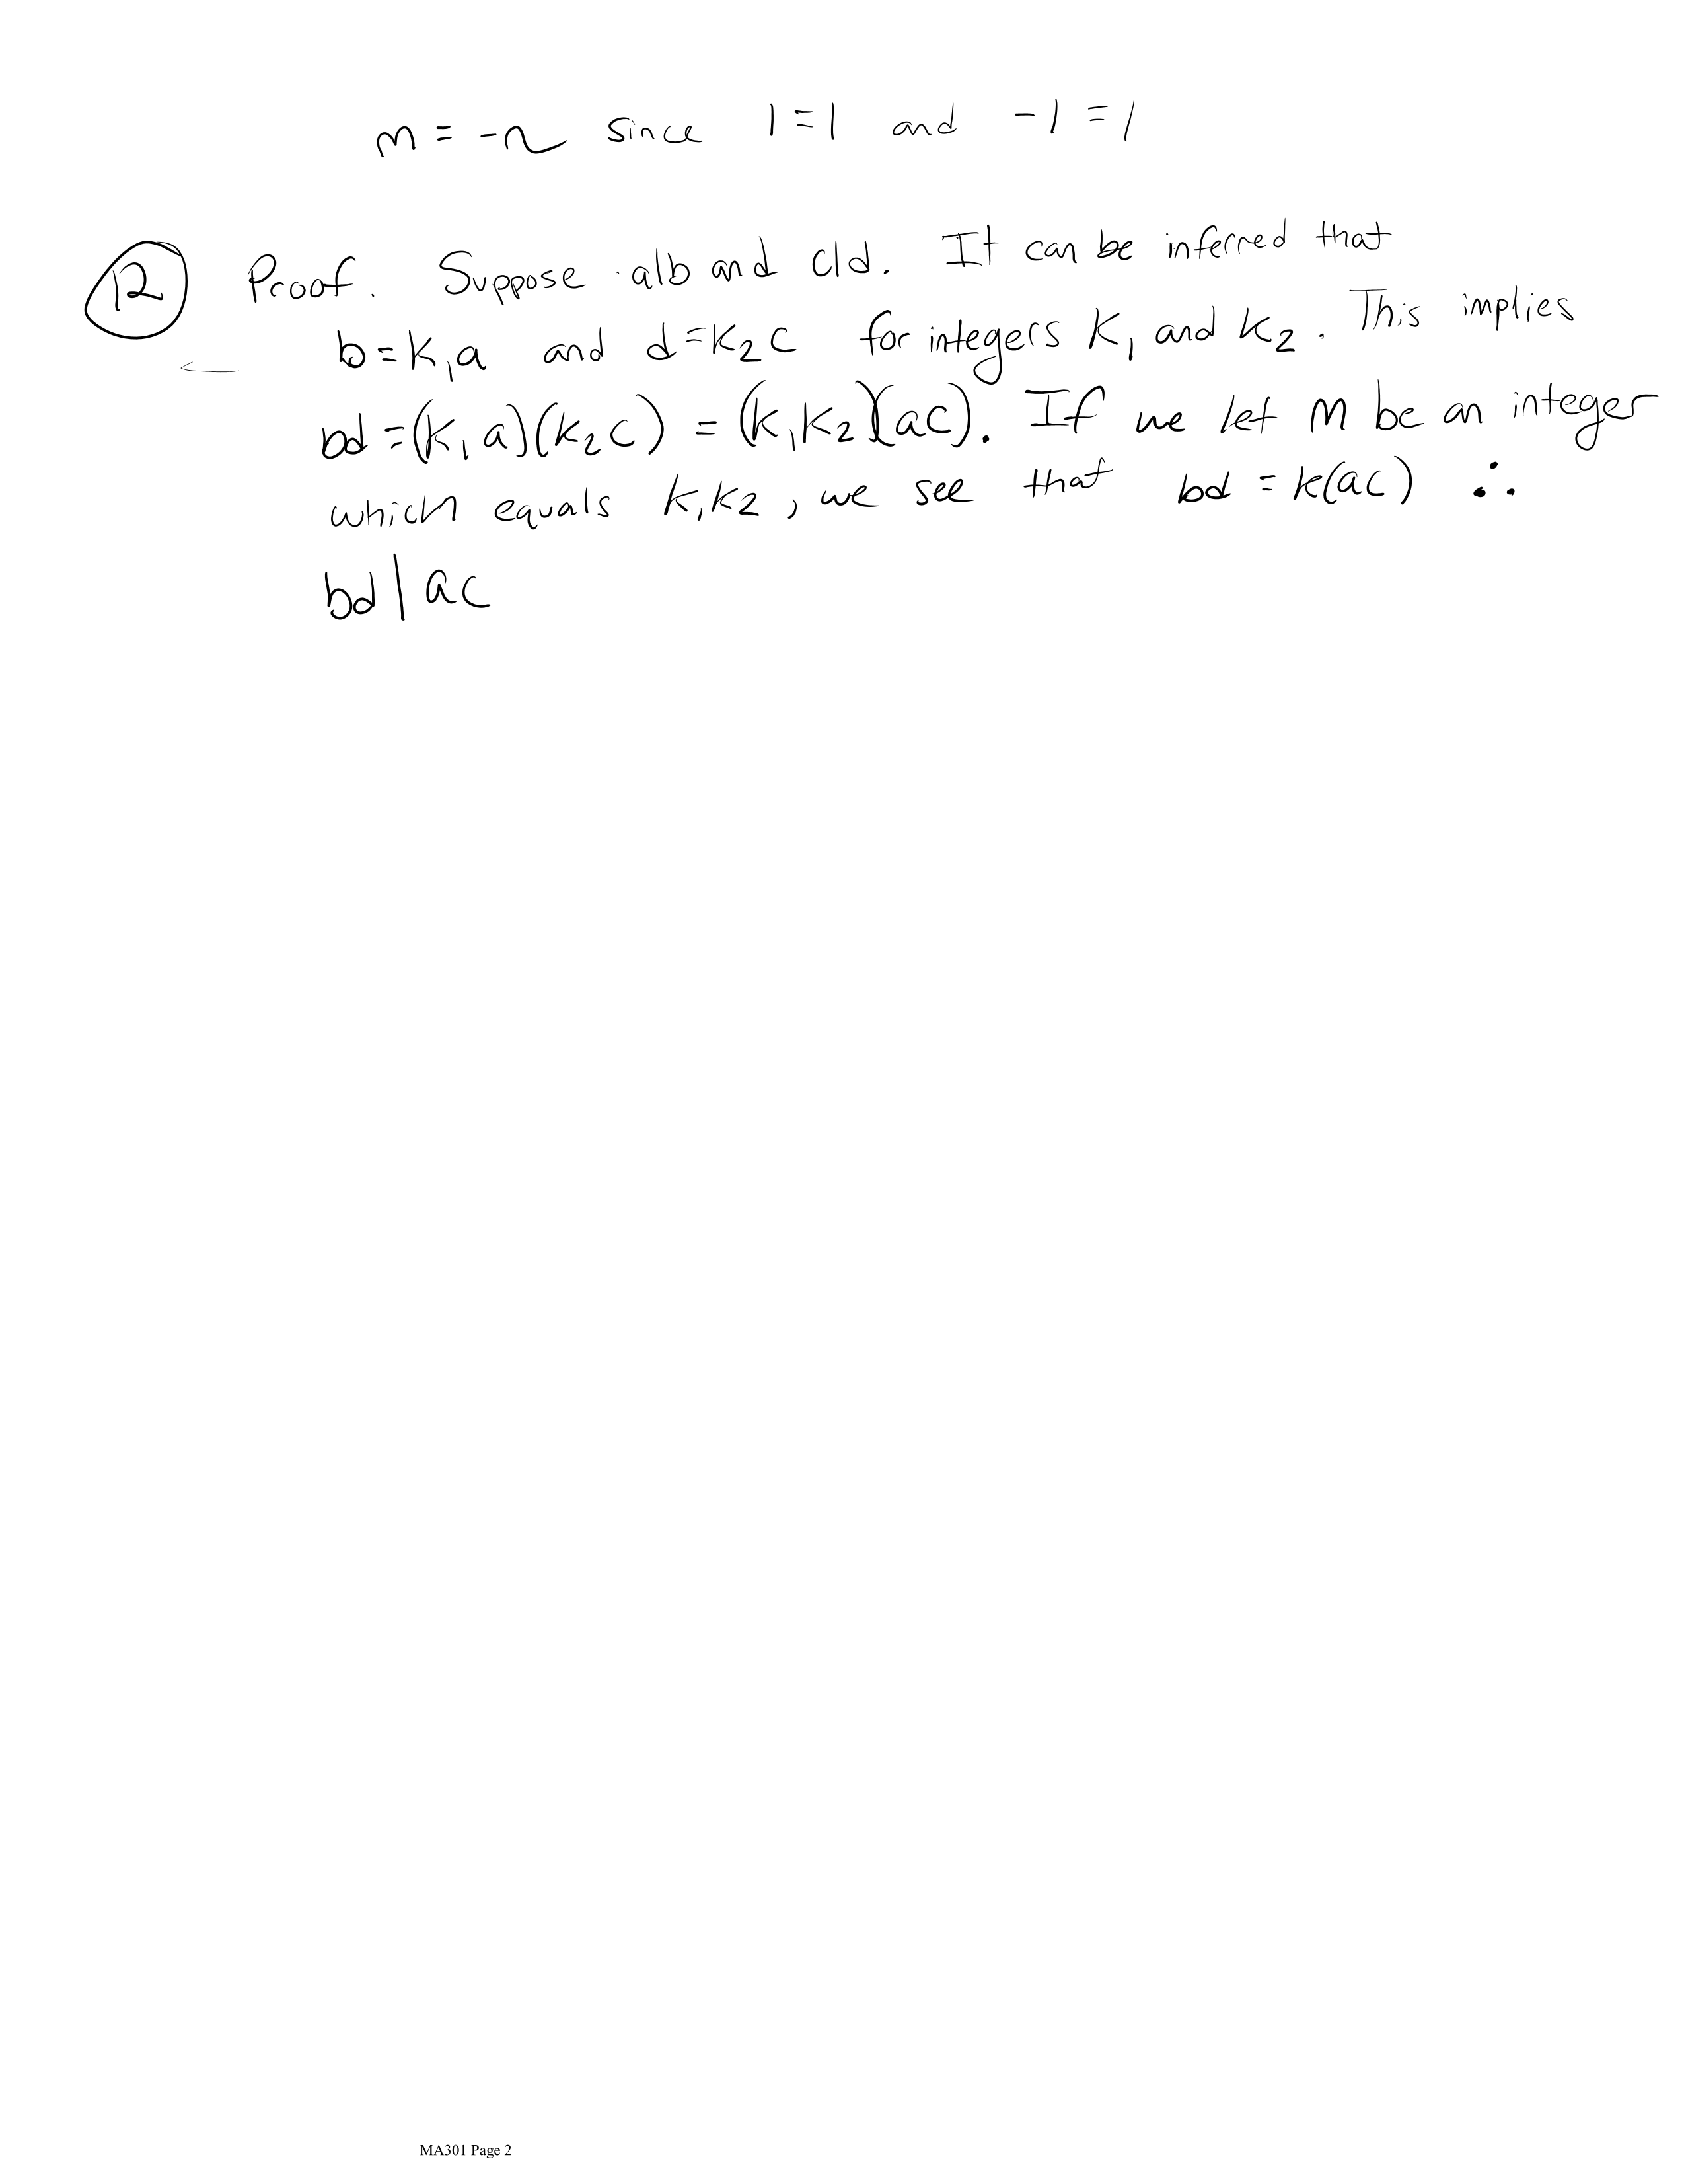 m = -n since 1=1 and -1=1
12 Proof. Suppose a|b and c|d. It can be inferred that
b=k₁a and d=k₂c for integers k₁ and k₂. This implies
bd =(k₁a)(k₂c) = (k₁k₂)(ac). If we let M be an integer
which equals k₁k₂, we see that bd = k(ac) ∴
bd | ac
MA301 Page 2